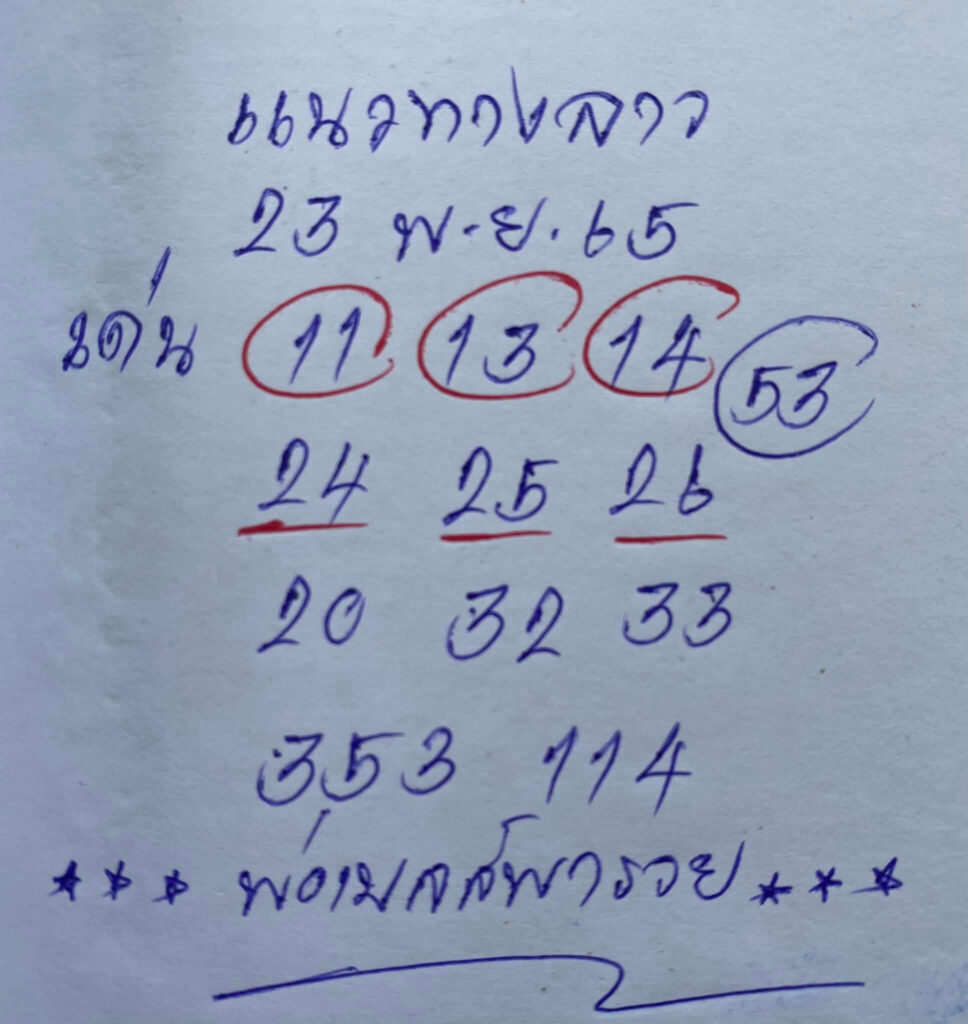 แนวทางลาว
23 พ.ย. 65
เด่น 11 13 14 53
24 25 26
20 32 33
353 114
*** พ่อเมลส์พารวย ***